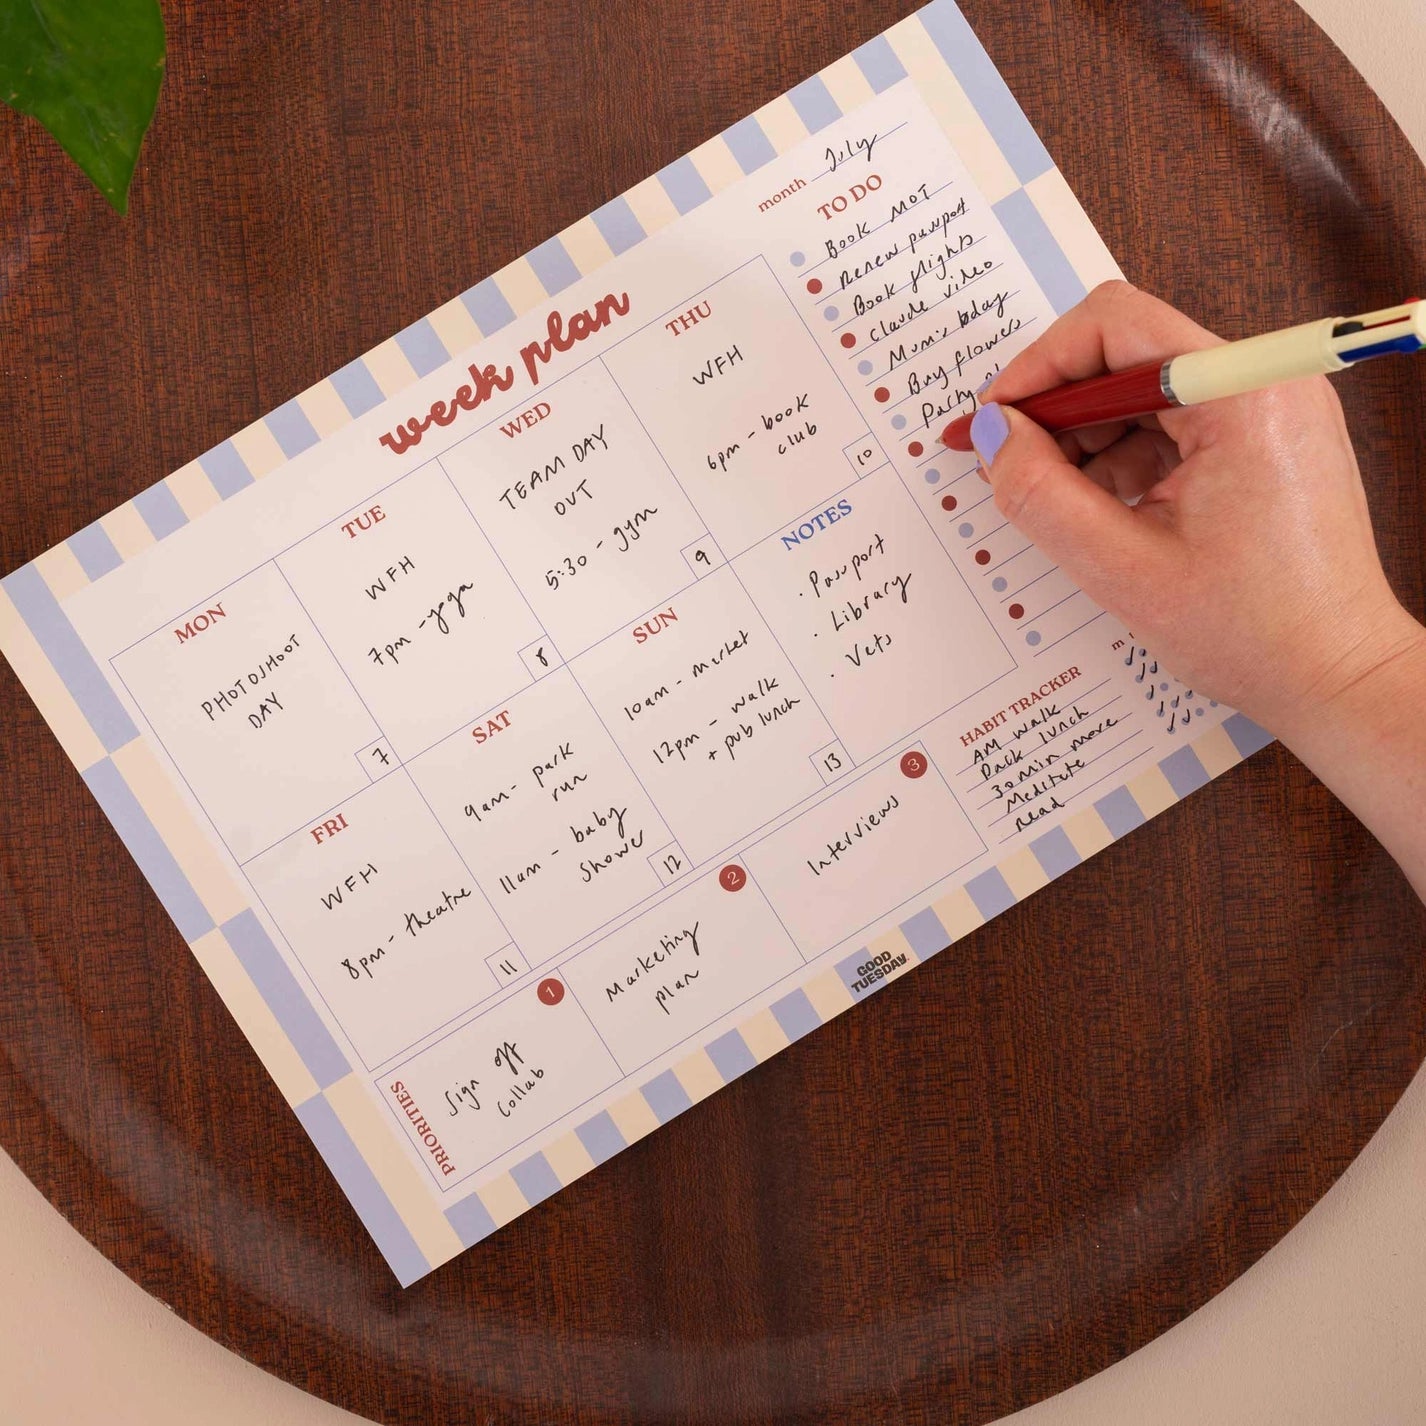 week plan
month July
MON
PHOTOSHOOT
DAY
7
TUE
WFH
7pm - yoga
8
WED
TEAM DAY
OUT
5:30 - gym
9
THU
WFH
6pm - book
club
10
FRI
WFH
8pm - theatre
11
SAT
9am - park
run
11am - baby
shower
12
SUN
10am - market
12pm - walk
+ pub lunch
13
NOTES
· Passport
· Library
· Vets
TO DO
Book MOT
Renew passport
Book flights
Claude video
Mum's bday
Buy flowers
Party
HABIT TRACKER
m
AM walk
Pack lunch
30min move
Meditate
read
PRIORITIES
1
Sign off
collab
2
Marketing
plan
3
Interviews
GOOD
TUESDAY.